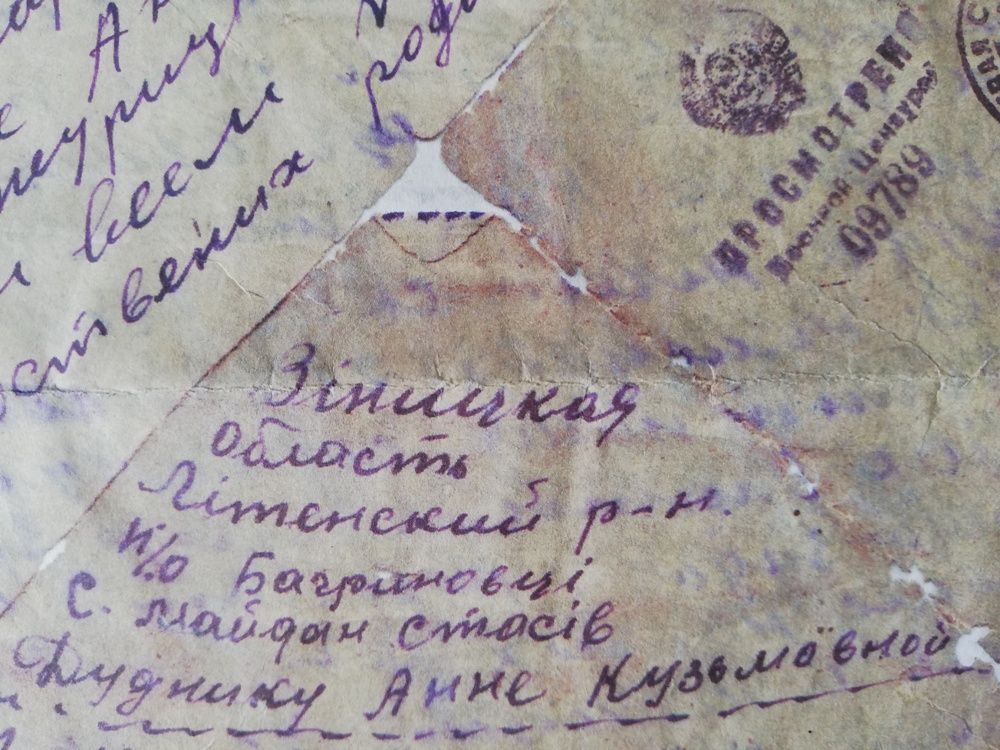 всем род
ствених
ПРОСМОТРЕНО
Военной Цензурой
09789
Вініцкая
область
Літенский р-н.
п/о Багриновці
с. Майдан стасів
Дуднику Анне Кузьмовной